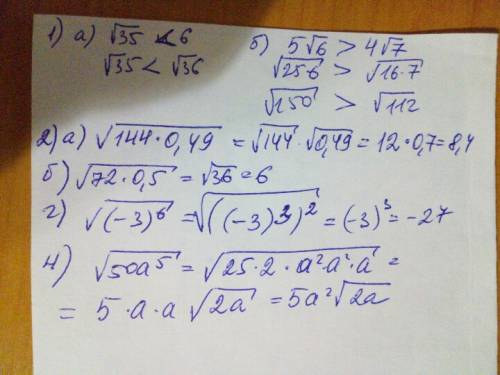 1) а) √35 < 6
√35 < √36
б) 5√6 > 4√7
√25·6 > √16·7
√150 > √112
2) а) √144·0,49 = √144·√0,49 = 12·0,7=8,4
б) √72·0,5 = √36 = 6
г) √(-3)⁶ = √((-3)³)² = (-3)³ = -27
4) √50a⁵ = √25·2·a²·a²·a =
= 5·a·a √2a = 5a²√2a